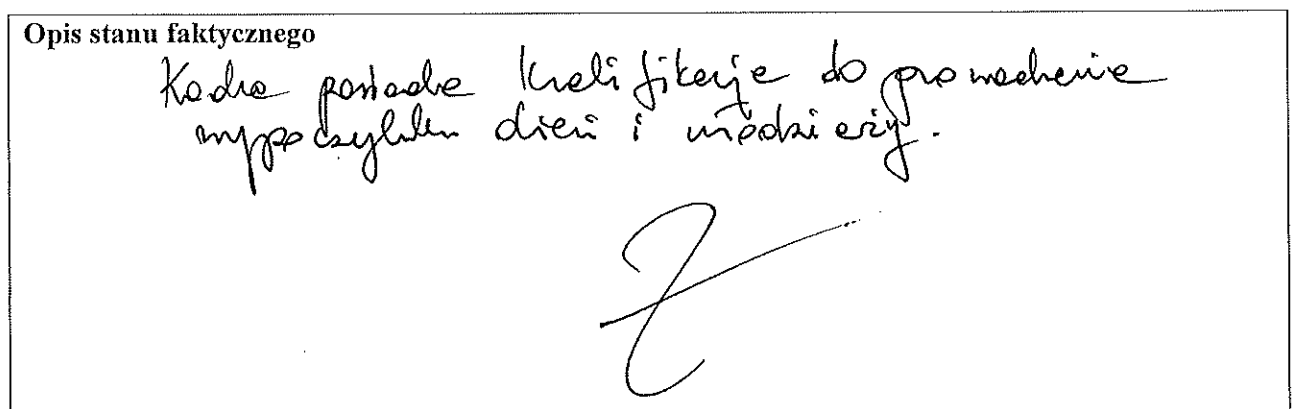 Opis stanu faktycznego
Kadra posiada kwalifikacje do prowadzenia
wypoczynku dzieci i młodzieży.